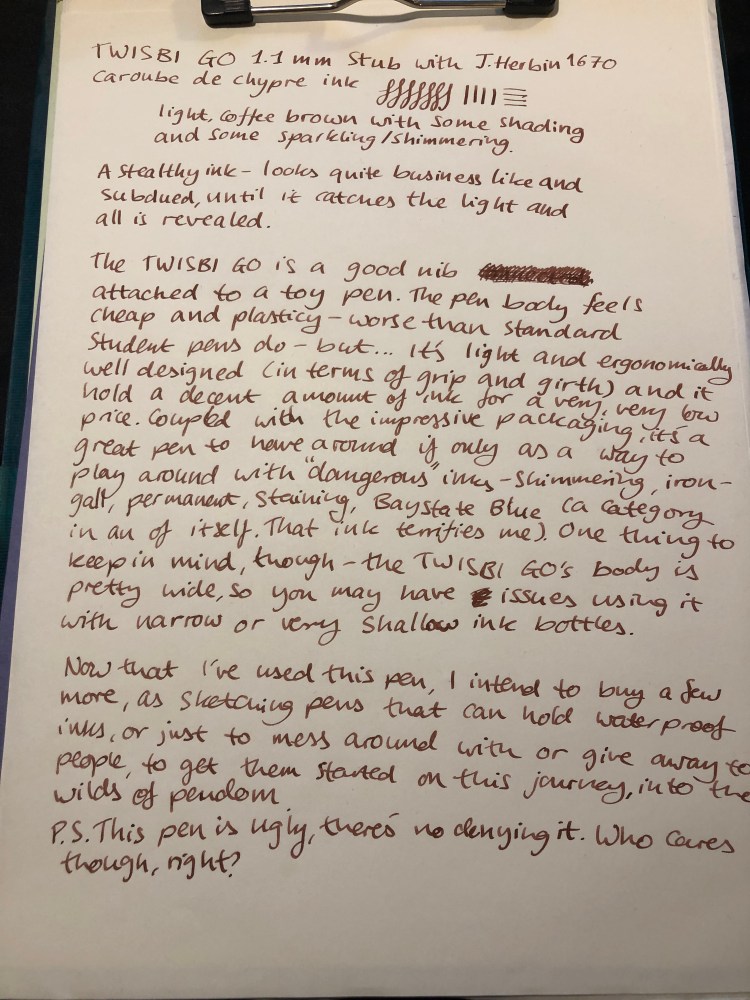 TWISBI GO 1.1 mm Stub with J.Herbin 1670
Caroube de chypre ink
light, coffee brown with some shading
and some sparkling/shimmering.
A stealthy ink – looks quite business like and
subdued, until it catches the light and
all is revealed.
The TWISBI GO is a good nib
attached to a toy pen. The pen body feels
cheap and plasticy – worse than standard
student pens do – but... It's light and ergonomically
well designed (in terms of grip and girth) and it
hold a decent amount of ink for a very, very low
price. Coupled with the impressive packaging, it's a
great pen to have around if only as a way to
play around with "dangerous" inks – shimmering, iron-
gall, permanent, staining, Baystate Blue (a category
in an of itself. That ink terrifies me). One thing to
keep in mind, though – the TWISBI GO's body is
pretty wide, so you may have issues using it
with narrow or very shallow ink bottles.
Now that I've used this pen, I intend to buy a few
more, as sketching pens that can hold waterproof
inks, or just to mess around with or give away to
people, to get them started on this journey, into the
wilds of pendom.
P.S. This pen is ugly, there's no denying it. Who cares
though, right?